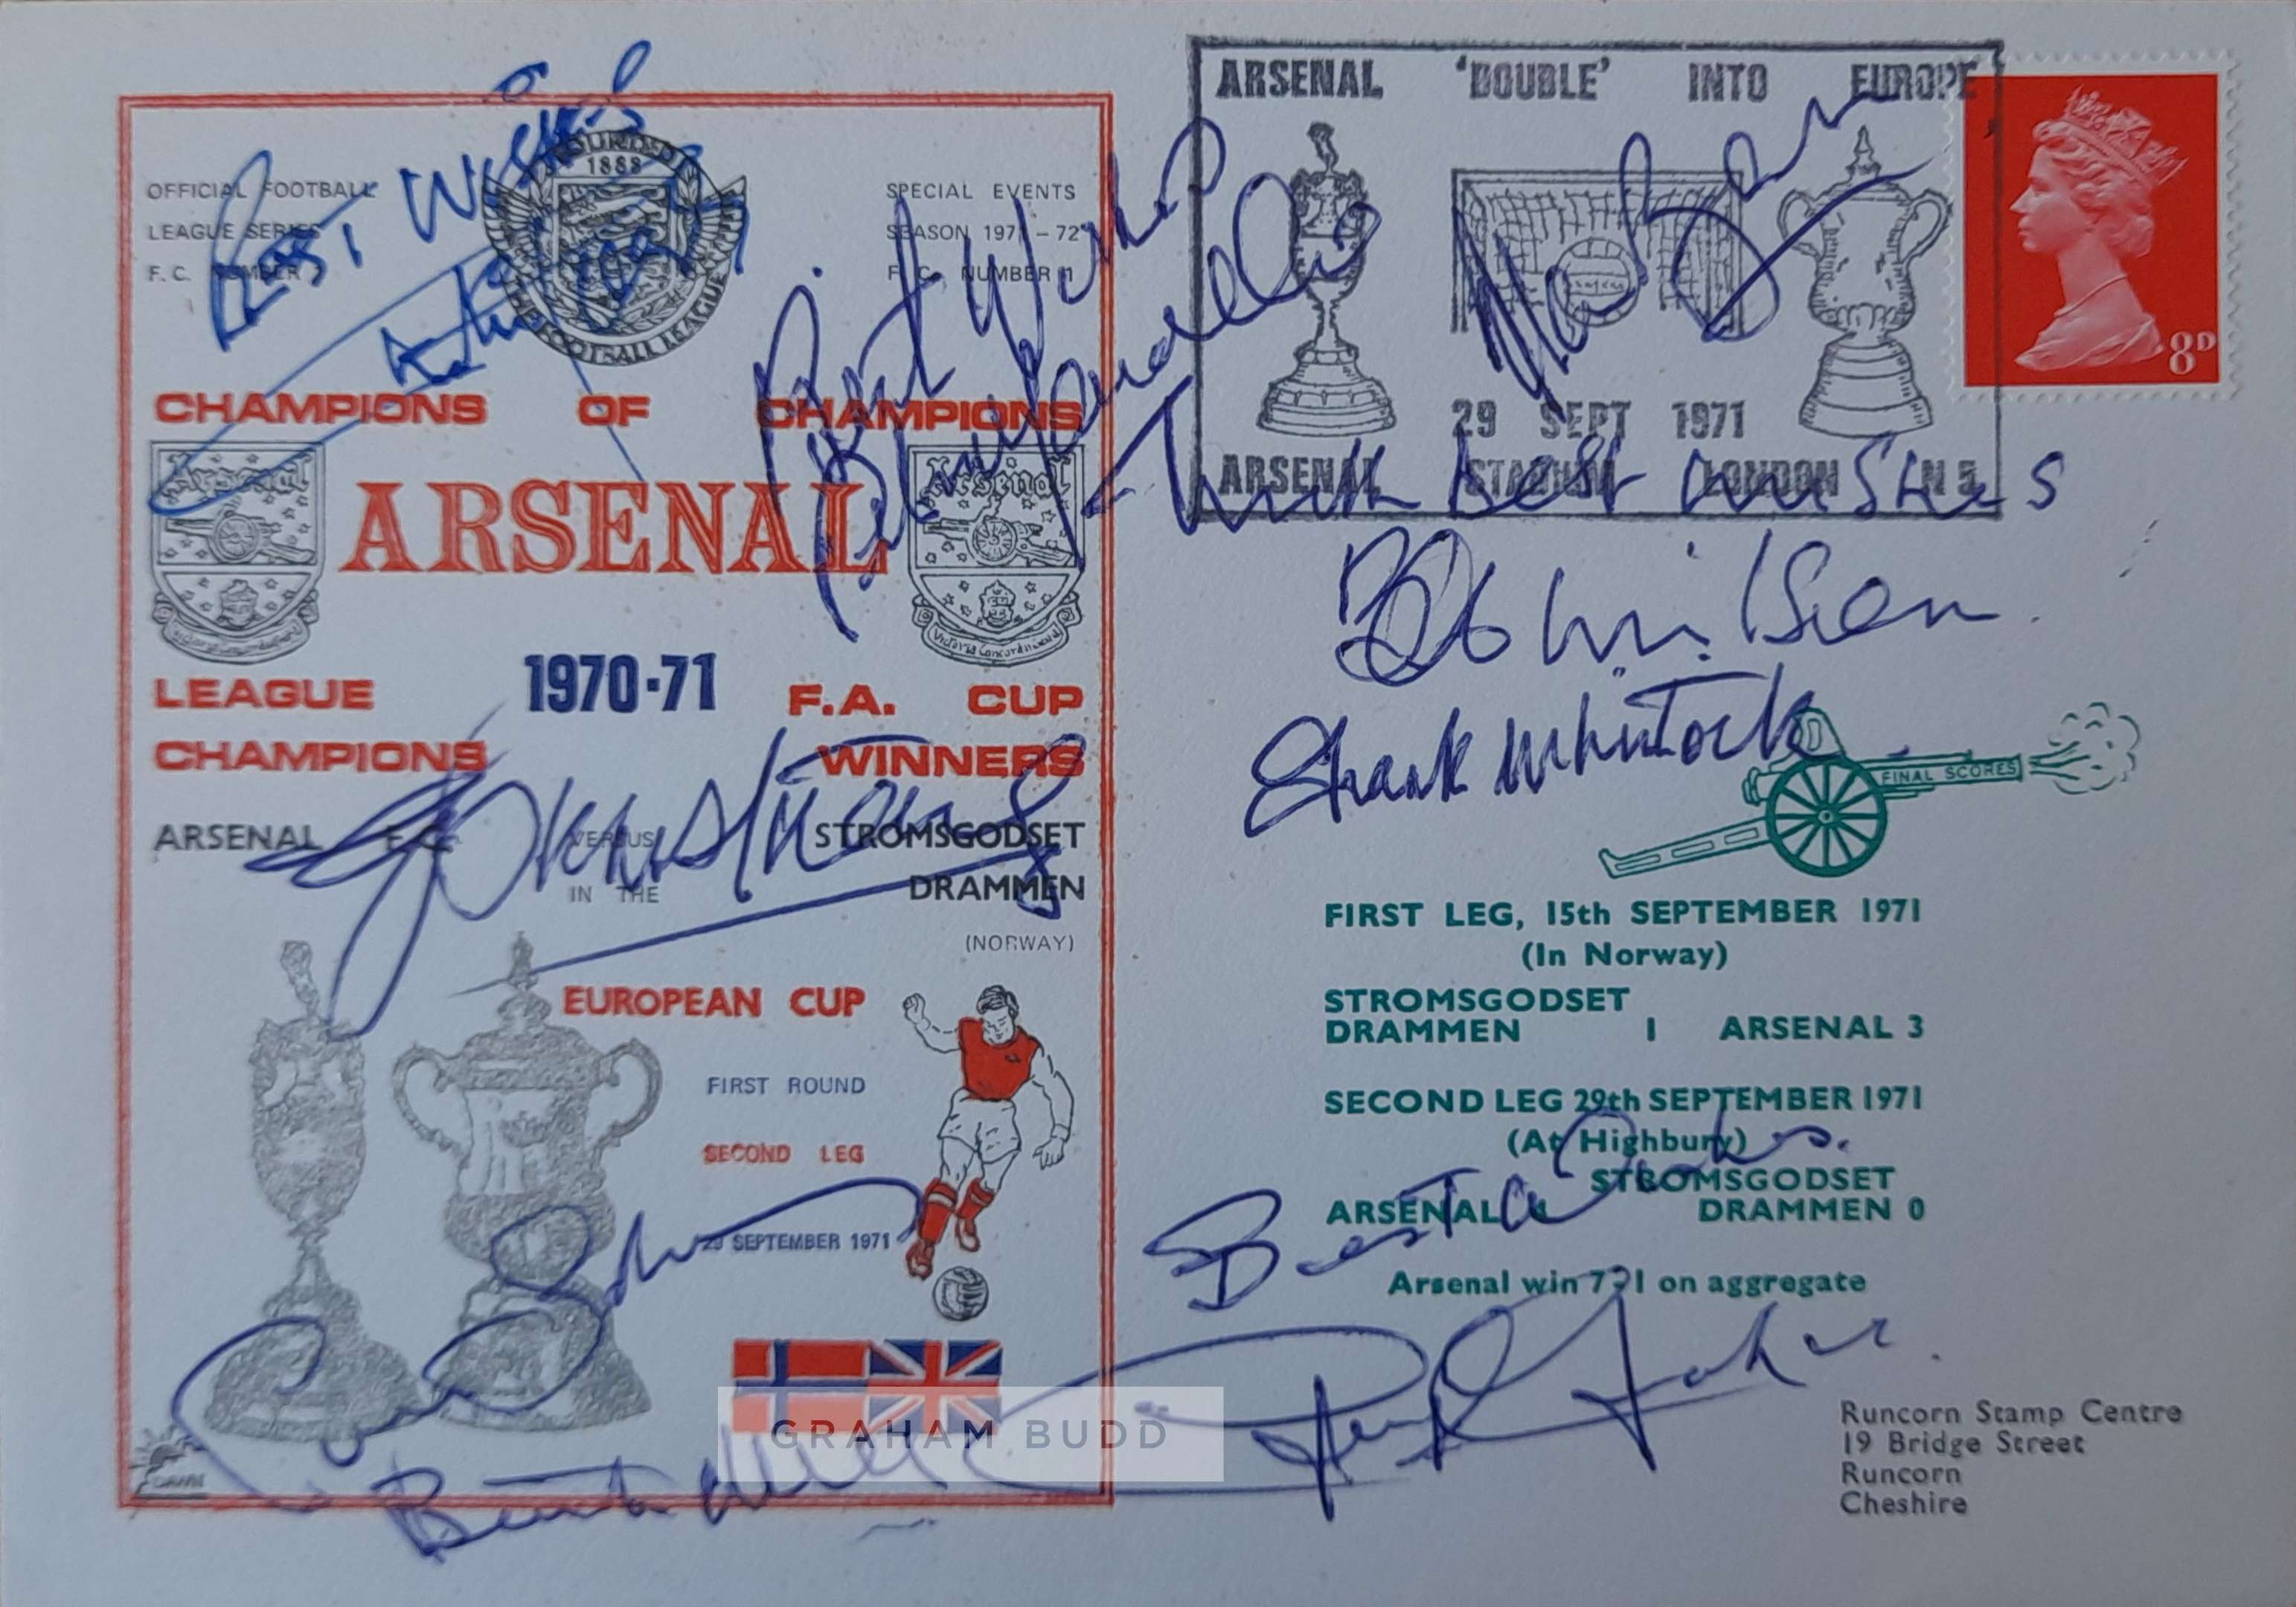 OFFICIAL FOOTBALL
LEAGUE SERIES
F.C. NUMBER
FOUNDED
1888
THE FOOTBALL LEAGUE
SPECIAL EVENTS
SEASON 1971-72
F.C. NUMBER 1
Best Wishes
Best Wishes
CHAMPIONS OF CHAMPIONS
Arsenal
ARSENAL
Arsenal
Victoria Concordia
LEAGUE 1970-71 F.A. CUP
CHAMPIONS WINNERS
ARSENAL F.C. VERSUS STROMSGODSET
IN THE DRAMMEN
(NORWAY)
EUROPEAN CUP
FIRST ROUND
SECOND LEG
29 SEPTEMBER 1971
GRAHAM BUDD
ARSENAL 'DOUBLE' INTO EUROPE
29 SEPT 1971
ARSENAL STADIUM LONDON N5
8D
With best wishes
Bob Wilson
FINAL SCORES
FIRST LEG, 15th SEPTEMBER 1971
(In Norway)
STROMSGODSET
DRAMMEN 1 ARSENAL 3
SECOND LEG 29th SEPTEMBER 1971
(At Highbury)
STROMSGODSET
ARSENAL 4 DRAMMEN 0
Best wishes.
Arsenal win 7-1 on aggregate
Runcorn Stamp Centre
19 Bridge Street
Runcorn
Cheshire